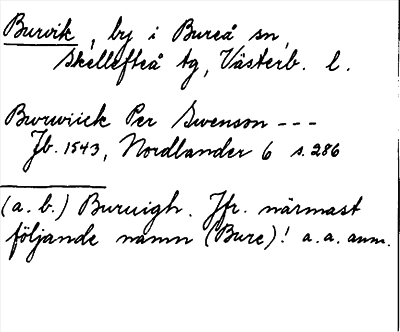 Burvik, by i Bureå sn,
Skellefteå tg, Västerb. l.
Bwrwiick Per Swenson ---
Jb. 1543, Nordlander 6 s. 286
(a. b.) Buruigh. Jfr. närmast
följande namn (Bure)! a. a. anm.